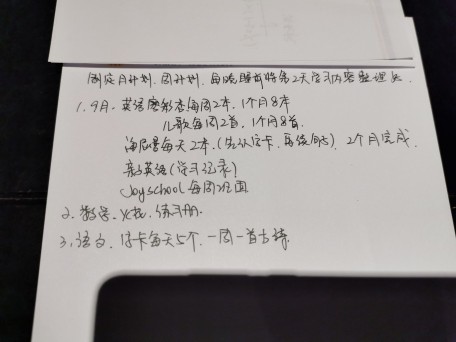 制定月计划、周计划、每晚睡前将第2天学习内容整理出
1、9月、英语磨耳杏每周2本、1个月8本
儿歌每周2首、1个月8首、
海尼曼每天2本、(先认字卡、再读句子)、2个月完成
亲子英语(学习记录)
Joyschool 每周2画
2、数学、练习册、
3、语文、字卡每天5个、一周一首古诗